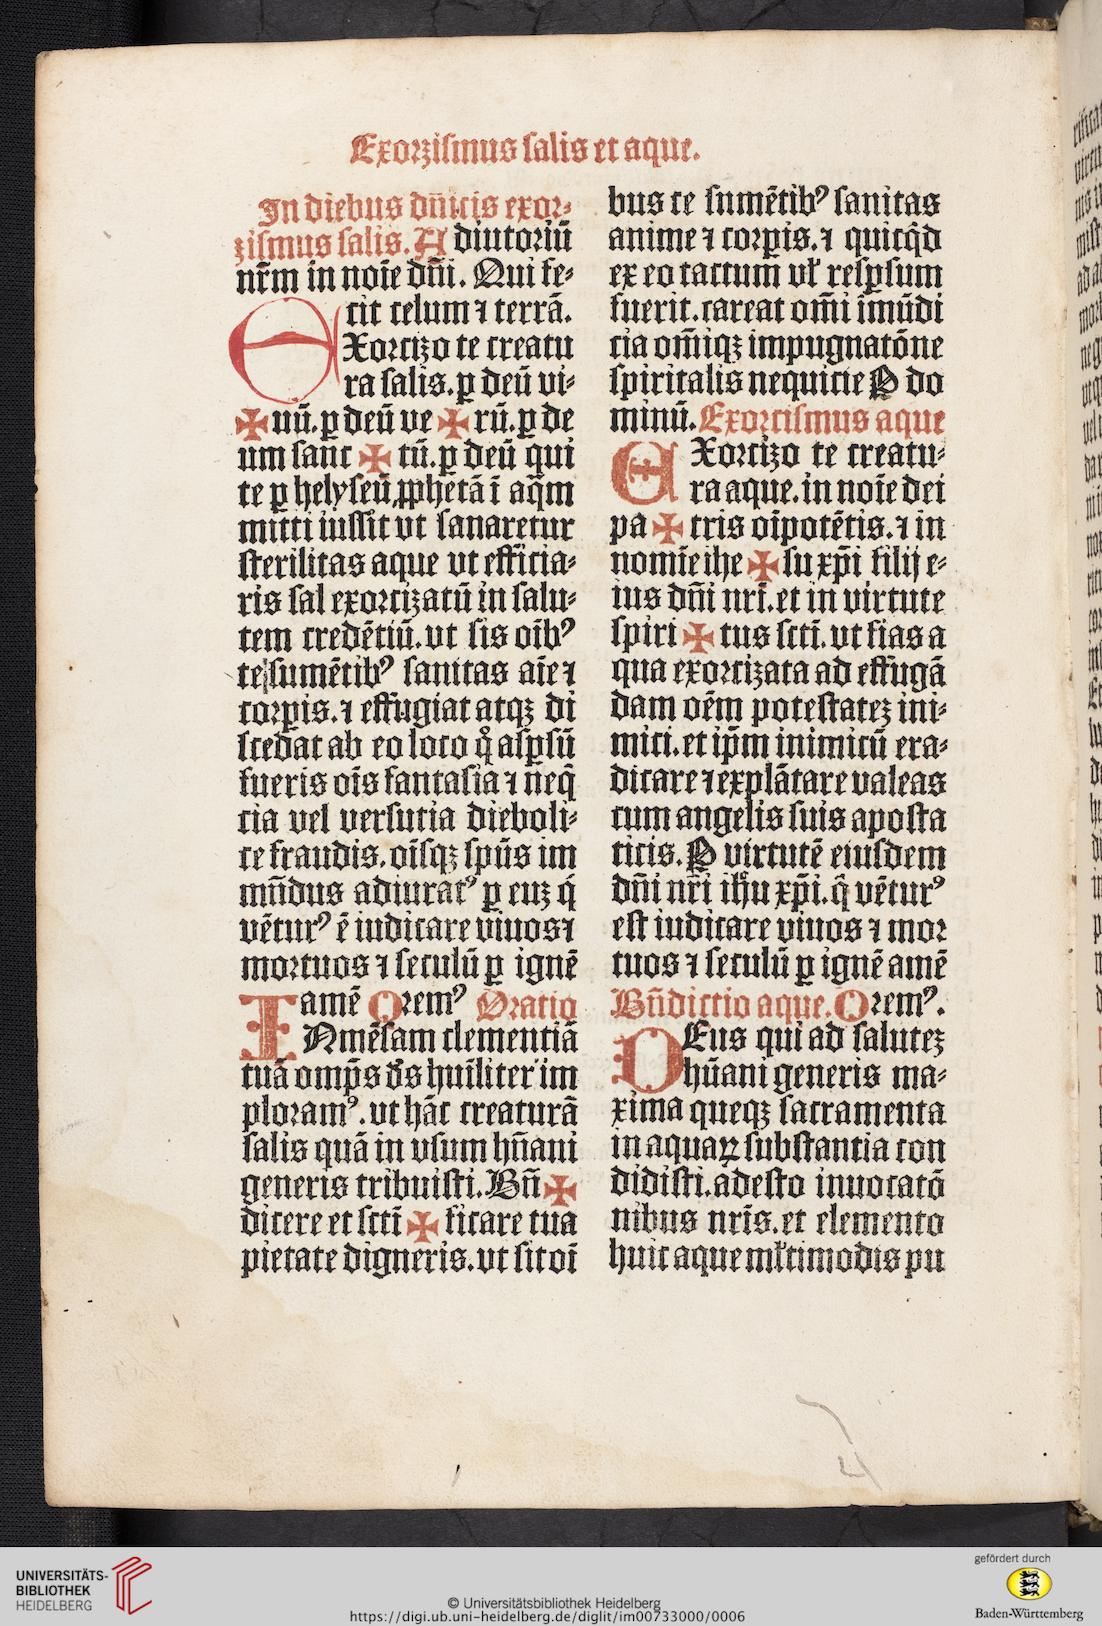 Exorzismus salis et aque.
In diebus dn̄icis exor⸗
zismus salis. Adiutoriū
nr̄m in noīe dn̄i. Qui fe⸗
cit celum ⁊ terrā.
EXorcizo te creatu
ra salis. ꝑ deū vi⸗
✠ uū. ꝑ deū ve ✠ rū. ꝑ de
um sanc ✠ tū. ꝑ deū qui
te ꝑ helyseū ꝓphetā ī aq̄m
mitti iussit vt sanaretur
sterilitas aque vt efficia⸗
ris sal exorcizatū in salu⸗
tem credētiū. vt sis oīb⁹
te sumētib⁹ sanitas aīe ⁊
corꝑis. ⁊ effugiat atqꝫ di
scedat ab eo loco q̊ aspsū
fueris oīs fantasia ⁊ neq̄
cia vel versutia dieboli⸗
ce fraudis. oīsqꝫ spūs im
mūdus adiurat⁹ ꝑ euꝫ q́
vētur⁹ ē iudicare viuos ⁊
mortuos ⁊ seculū ꝑ ignē
amē Orem⁹ Oratio
INmēsam clementiā
tuā omp̄s ds̄ huīliter im
ploram⁹. vt hāc creaturā
salis quā in vsum hūani
generis tribuisti. Bn̄ ✠
dicere et sctī ✠ ficare tua
pietate digneris. vt sit oī
bus te sumētib⁹ sanitas
anime ⁊ corꝑis. ⁊ quicq̇d
ex eo tactum vl̓ resꝑsum
fuerit. careat om̄i īmūdi
cia om̄iqꝫ impugnatōne
spiritalis nequicie P do
minū. Exorcismus aque
EXorcizo te creatu⸗
ra aque. in noīe dei
pa ✠ tris oīpotētis. ⁊ in
nomīe ihe ✠ su xp̄i filij e⸗
ius dn̄i nrī. et in virtute
spiri ✠ tus sctī. vt fias a
qua exorcizata ad effūgā
dam oēm potestateꝫ ini⸗
mici. et ip̄m inimicū era⸗
dicare ⁊ explātare valeas
cum angelis suis aposta
ticis. P virtutē eiusdem
dn̄i nr̄i ih̄u xp̄i. q̄ vētur⁹
est iudicare viuos ⁊ mor
tuos ⁊ seculū ꝑ ignē amē
Bn̄dictio aque. Orem⁹.
DEus qui ad saluteꝫ
hūani generis ma⸗
xima queqꝫ sacramenta
in aquaꝝ substantia con
didisti. adesto inuocatō
nibus nrīs. et elemento
huic aque ml̓timodis pu
UNIVERSITÄTS-
BIBLIOTHEK
HEIDELBERG
© Universitätsbibliothek Heidelberg
https://digi.ub.uni-heidelberg.de/diglit/im00733000/0006
gefördert durch
Baden-Württemberg